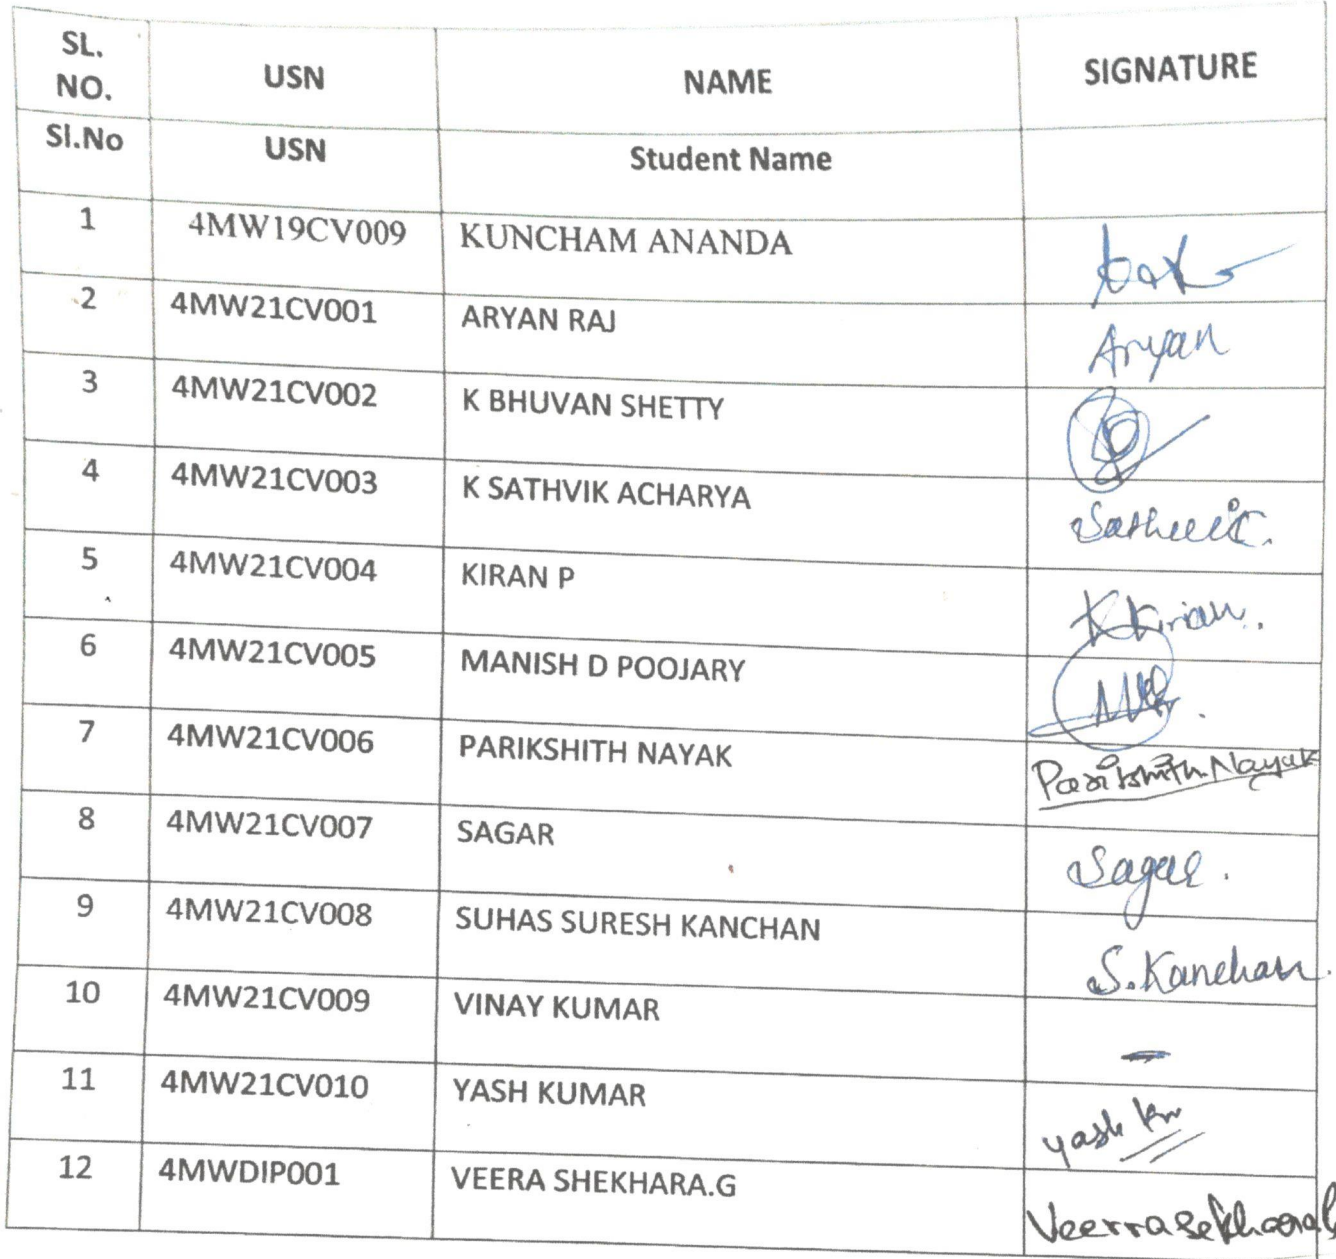 SL. NO. USN NAME SIGNATURE
Sl.No USN Student Name
1 4MW19CV009 KUNCHAM ANANDA
2 4MW21CV001 ARYAN RAJ Aryan
3 4MW21CV002 K BHUVAN SHETTY
4 4MW21CV003 K SATHVIK ACHARYA
5 4MW21CV004 KIRAN P
6 4MW21CV005 MANISH D POOJARY
7 4MW21CV006 PARIKSHITH NAYAK Parikshith Nayak
8 4MW21CV007 SAGAR Sagar.
9 4MW21CV008 SUHAS SURESH KANCHAN S.Kanchan.
10 4MW21CV009 VINAY KUMAR -
11 4MW21CV010 YASH KUMAR yash
12 4MWDIP001 VEERA SHEKHARA.G